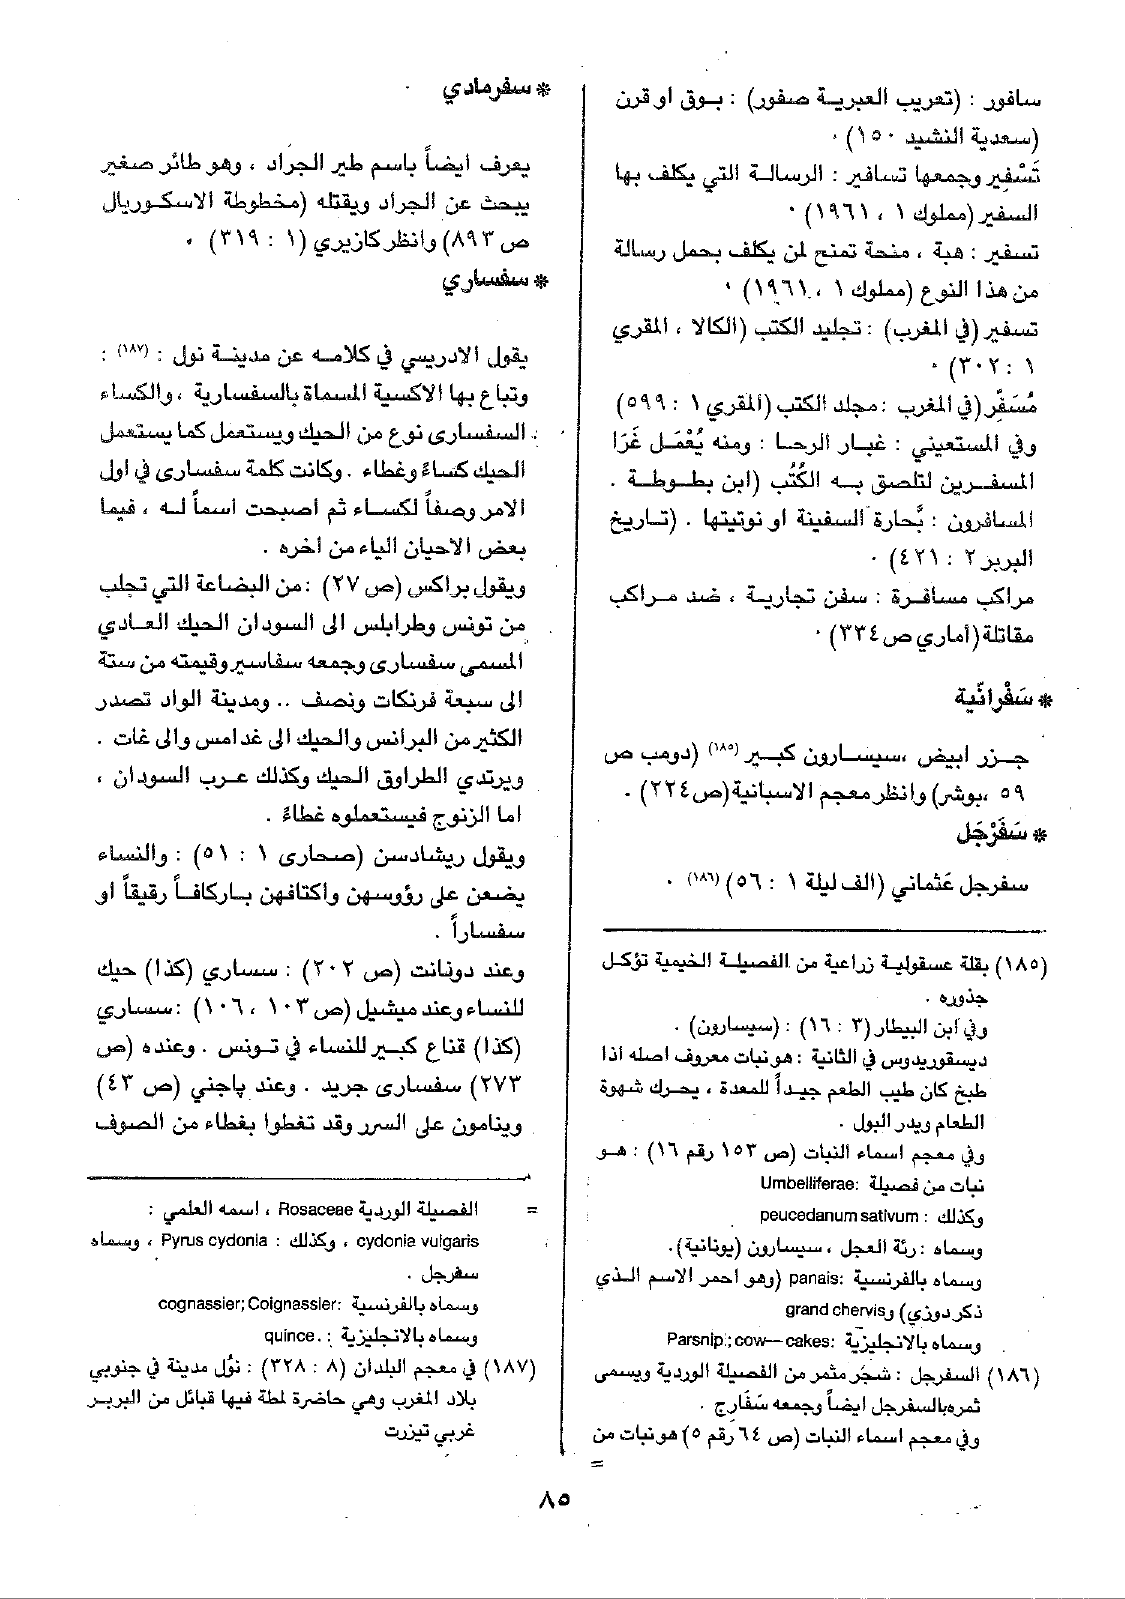 سافور : (تعريب العبرية صفور) : بوق او قرن
(سعدية النشيد ١٥٠) ٠
تَسْفِير وجمعها تسافير : الرسالة التي يكلف بها
السفير (مملوك ١ ، ١٩٦١) ٠
تسفير : هبة ، منحة تمنح لمن يكلف بحمل رسالة
من هذا النوع (مملوك ١ ، ١٩٦١) ٠
تسفير (في المغرب) : تجليد الكتب (الكالا ، المقري
١ : ٣٠٢) ٠
مُسَفِّر (في المغرب : مجلد الكتب (المقري ١ : ٥٩٩)
وفي المستعيني : غبار الرحا : ومنه يُعْمَل غَرَا
المسفرين لتلصق به الكُتُب (ابن بطوطة .
المسافرون : بَّحارة السفينة او نوتيتها . (تاريخ
البربر ٢ : ٤٢١) ٠
مراكب مسافرة : سفن تجارية ، ضد مراكب
مقاتلة (أماري ص ٣٣٤) ٠
* سَفْرانّية
جزر ابيض ،سيسارون كبير (١٨٥) (دومب ص
٥٩ ،بوشر) وانظر معجم الاسبانية (ص ٢٢٤) .
* سَفَرْجَل
سفرجل عثماني (الف ليلة ١ : ٥٦) (١٨٦) .
(١٨٥) بقلة عسقولية زراعية من الفصيلة الخيمية تؤكل
جذوره .
وفي ابن البيطار (٣ : ١٦) : (سيسارون) .
ديسقوريدوس في الثانية : هو نبات معروف اصله اذا
طبخ كان طيب الطعم جيداً للمعدة ، يحرك شهوة
الطعام ويدر البول .
وفي معجم اسماء النبات (ص ١٥٣ رقم ١٦) : هو
نبات من فصيلة :Umbelliferae
وكذلك : peucedanum sativum
وسماه : رئة العجل ، سيسارون (يونانية).
وسماه بالفرنسية :panais (وهو احمر الاسم الذي
ذكر دوزي) وgrand chervis
وسماه بالانجليزية :Parsnip; cow—cakes
(١٨٦) السفرجل : شجر مثمر من الفصيلة الوردية ويسمى
ثمره بالسفرجل ايضاً وجمعه سَفَارج .
وفي معجم اسماء النبات (ص ٦٤ رقم ٥) هو نبات من
=
* سفرمادي
يعرف ايضاً باسم طير الجراد ، وهو طائر صغير
يبحث عن الجراد ويقتله (مخطوطة الاسكوريال
ص ٨٩٣) وانظر كازيري (١ : ٣١٩) ٠
* سفساري
يقول الادريسي في كلامه عن مدينة نول : (١٨٧) :
وتباع بها الاكسية المسماة بالسفسارية ، والكساء
السفسارى نوع من الحيك ويستعمل كما يستعمل
الحيك كساءً وغطاء . وكانت كلمة سفسارى في اول
الامر وصفاً لكساء ثم اصبحت اسماً له ، فيما
بعض الاحيان الياء من اخره .
ويقول براكس (ص ٢٧) : من البضاعة التي تجلب
من تونس وطرابلس الى السودان الحيك العادي
المسمى سفسارى وجمعه سفاسير وقيمته من ستة
الى سبعة فرنكات ونصف .. ومدينة الواد تصدر
الكثير من البرانس والحيك الى غدامس والى غات .
ويرتدي الطراوق الحيك وكذلك عرب السودان ،
اما الزنوج فيستعملوه غطاءً .
ويقول ريشادسن (صحارى ١ : ٥١) : والنساء
يضعن على رؤوسهن واكتافهن باركافاً رقيقاً او
سفساراً .
وعند دونانت (ص ٢٠٢) : سساري (كذا) حيك
للنساء وعند ميشيل (ص ١٠٣ ، ١٠٦) : سساري
(كذا) قناع كبير للنساء في تونس . وعنده (ص
٢٧٣) سفسارى جريد . وعند پاجني (ص ٤٣)
وينامون على السرر وقد تغطوا بغطاء من الصوف
= الفصيلة الوردية Rosaceae ، اسمه العلمي :
cydonia vulgaris ، وكذلك : Pyrus cydonia ، وسماه
سفرجل .
وسماه بالفرنسية :cognassier; Coignassier
وسماه بالانجليزية : .quince
(١٨٧) في معجم البلدان (٨ : ٣٢٨) : نُوُل مدينة في جنوبي
بلاد المغرب وهي حاضرة لمطة فيها قبائل من البربر
غربي تيزرت
٨٥